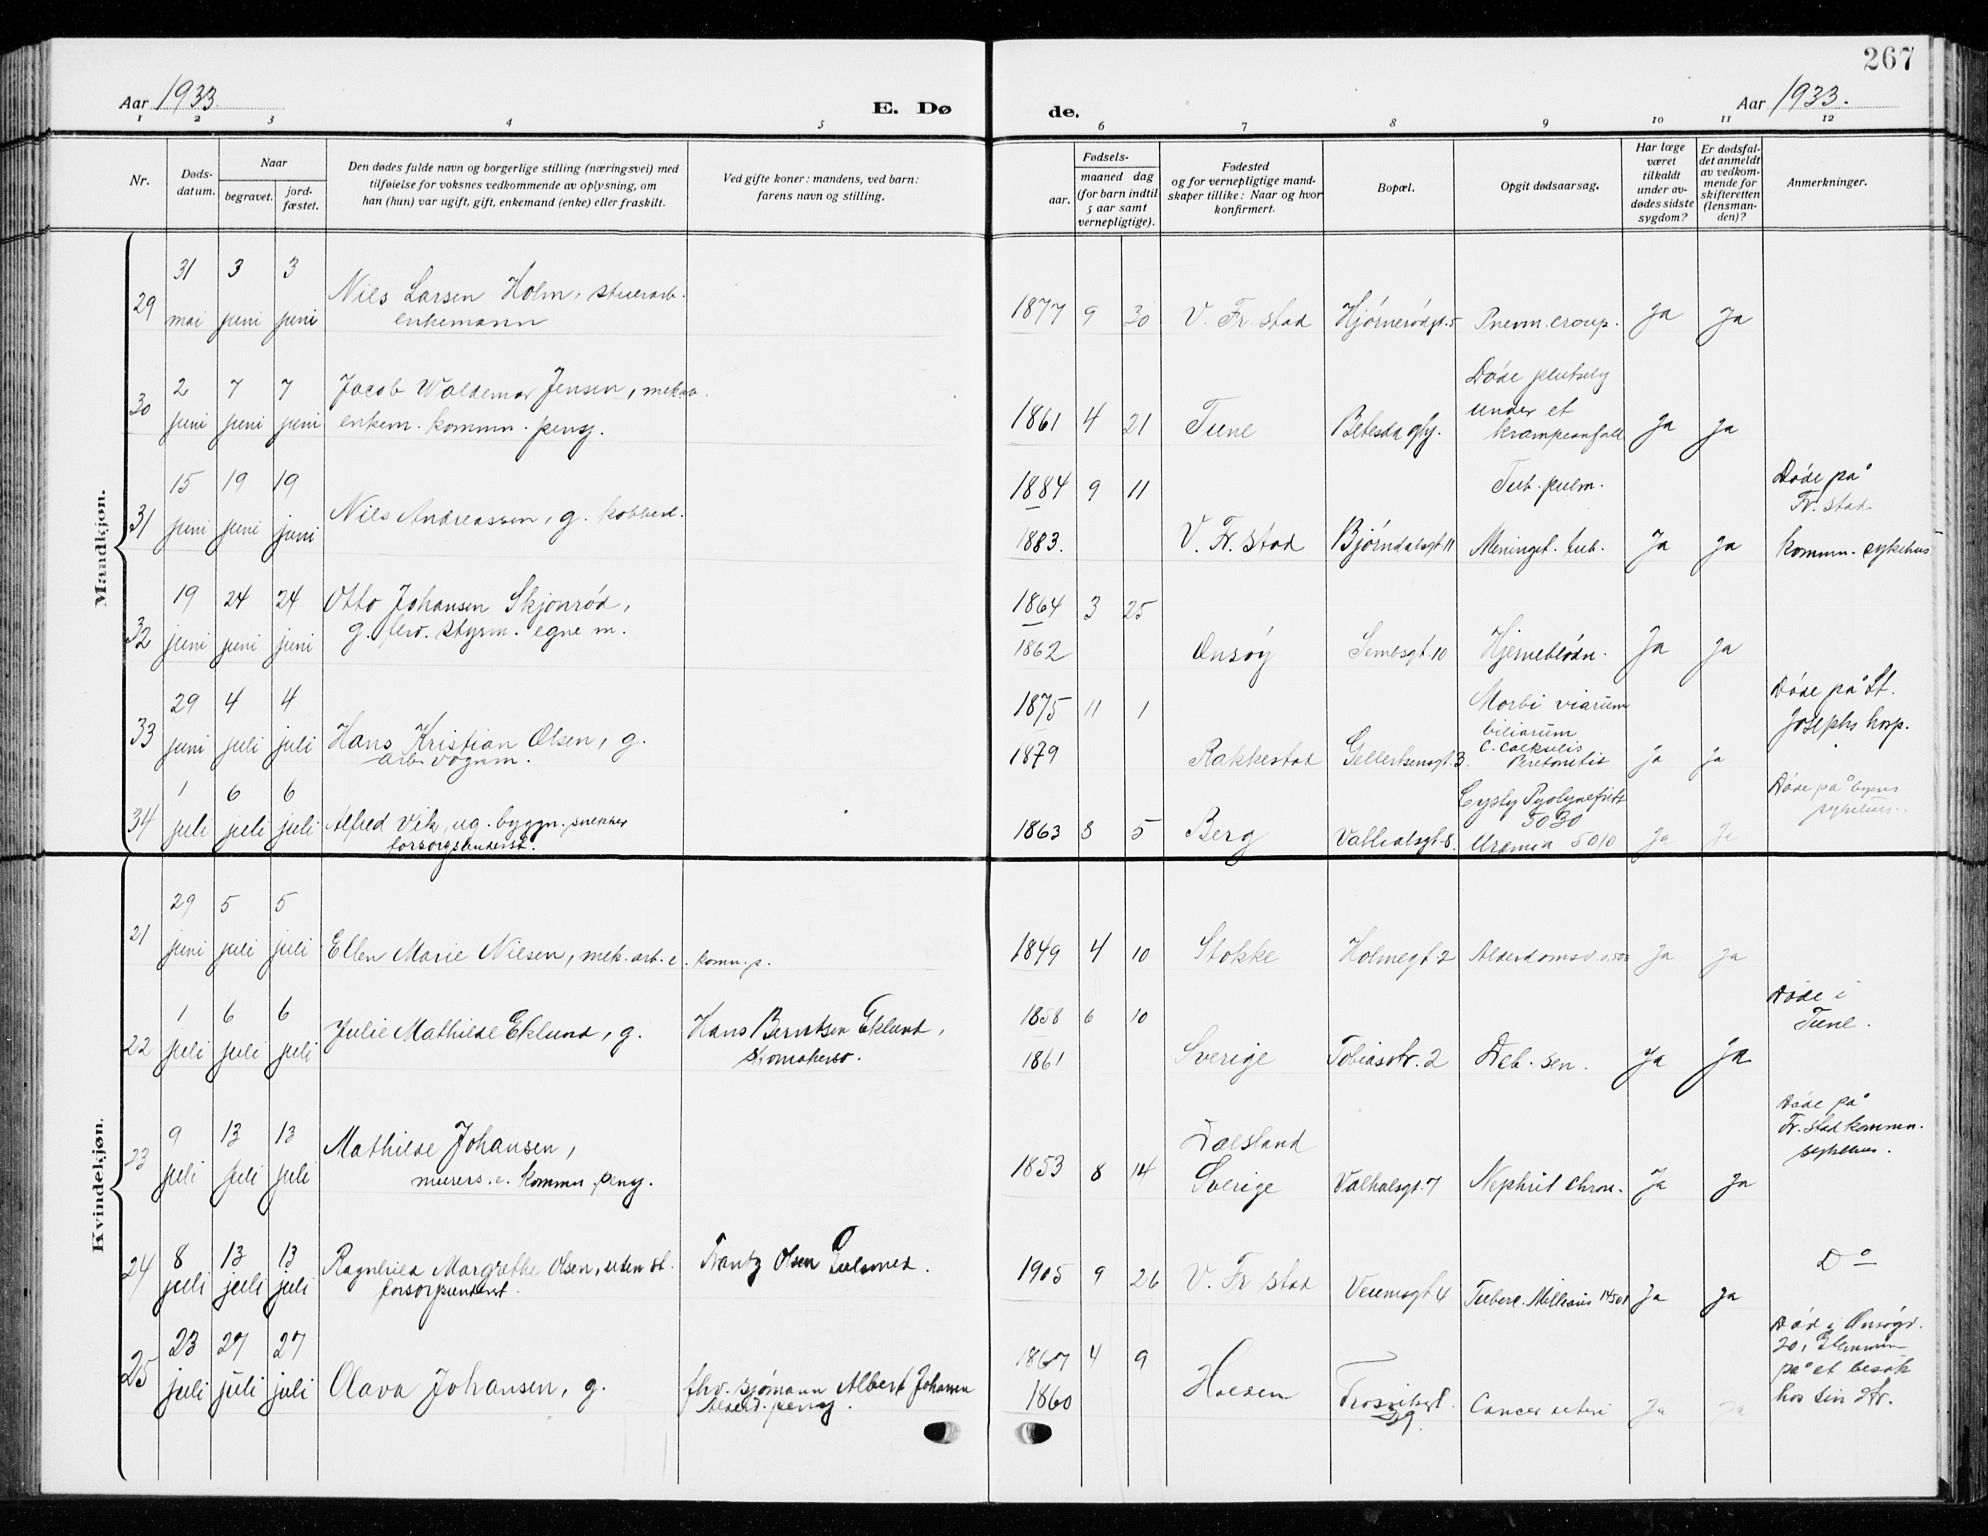 267
Aar 1933.
E. Dø
de.
Aar 1933.
1 2 3 4 5 6 7 8 9 10 11 12
Nr.
Døds-
datum.
Naar
begravet.
jord-
fæstet.
Den dødes fulde navn og borgerlige stilling (næringsvei) med
tilføielse for voksnes vedkommende av oplysning, om
han (hun) var ugift, gift, enkemand (enke) eller fraskilt.
Ved gifte koner: mandens, ved barn:
farens navn og stilling.
Fødsels-
aar.
maaned dag
(for barn indtil
5 aar samt
vernepligtige).
Fødested
og for vernepligtige mand-
skaper tillike: Naar og hvor
konfirmert.
Bopæl.
Opgit dødsaarsag.
Har læge
været
tilkaldt
under av-
dødes sidste
sygdom?
Er dødsfal-
det anmeldt
av vedkom-
mende for
skifteretten
(lensman-
den)?
Anmerkninger.
Mandkjøn.
29
31 3 3
mai juni juni
Nils Larsen Holm, stuerarb.
enkemann
1877 9 30 V. Fr.stad Hjørnerødgt. 5 Pneum. croup. Ja Ja
30
2 7 7
juni juni juni
Jacob Waldemar Jensen, mek.arb.
enkem. kommn. pensj.
1861 4 21 Tune Betesda gby.
Døde plutselig
under et
krampeanfall
Ja Ja
31
15 19 19
juni juni juni
Nils Andreassen, g. kobbersl.
1884 9 11
1883.
V. Fr.stad Bjørndalsgt 11
Tub. pulm.
Meningit. tub.
Ja Ja
Døde på
Fr.stad
kommn. sykehus
32
19 24 24
juni juni juni
Otto Johansen Skjønrød,
g. frv. styrm. egne m.
1864 3 25
1862
Onsøy Semsgt. 10 Hjerneblødn. Ja Ja
33
29 4 4
juni juli juli
Hans Kristian Olsen, g.
arb vognm.
1875 11 1
1879
Rakkestad Gellertsensgt. 3.
Morbi viarum
biliarum
c. calkulis
Peretonitis
Ja Ja
Døde på St.
Josephs hosp.
34
1 6 6
juli juli juli
Alfred Vik, ug. byggn. snekker
forsorgsunderst.
1863 8 5 Berg Valhalsgt. 8.
5030
Uræmia 5010
Ja Ja
Døde på byens
sykehus.
Kvindekjøn.
21
29 5 5
juni juli juli
Ellen Marie Nilsen, mek. arb. e. komn. p.
1849 4 10 Stokke Holmegt. 2 Alderdomsv. 0.500 Ja Ja
22
1 6 6
juli juli juli
Julie Mathilde Eklund, g.
Hans Berntsen Eklund,
skomakersv.
1858 6 10
1861
Sverige Tobiasstr. 2 Deb. sen. Ja Ja
Døde i
Tune.
23
9 13 13
juli juli juli
Mathilde Johansen,
murers. e. kommn. pensj.
1853 8 14
Dalsland
Sverige
Valhalsgt. 7 Nephrit chron. Ja Ja
Døde på
Fr.stad kommn.
sykehus.
24
8 13 13
juli juli juli
Ragnhild Margrethe Olsen, uten st.
forsorgsunderst.
Frantz Olsen Gulsmed.
1905 9 26 V. Fr stad Veumsgt 4 Tuberc. Milliaris 14501 Ja Ja
Do
25
23 27 27
juli juli juli
Olava Johansen, g.
fhv. sjømann Albert Johansen
alderd. pensj.
1867 4 9
1860
Halden
Trosvikgt.
39.
Cancer uteri Ja Ja
Død i Onsøgt.
20, Glemmen
på et besøk
hos sin dtr.